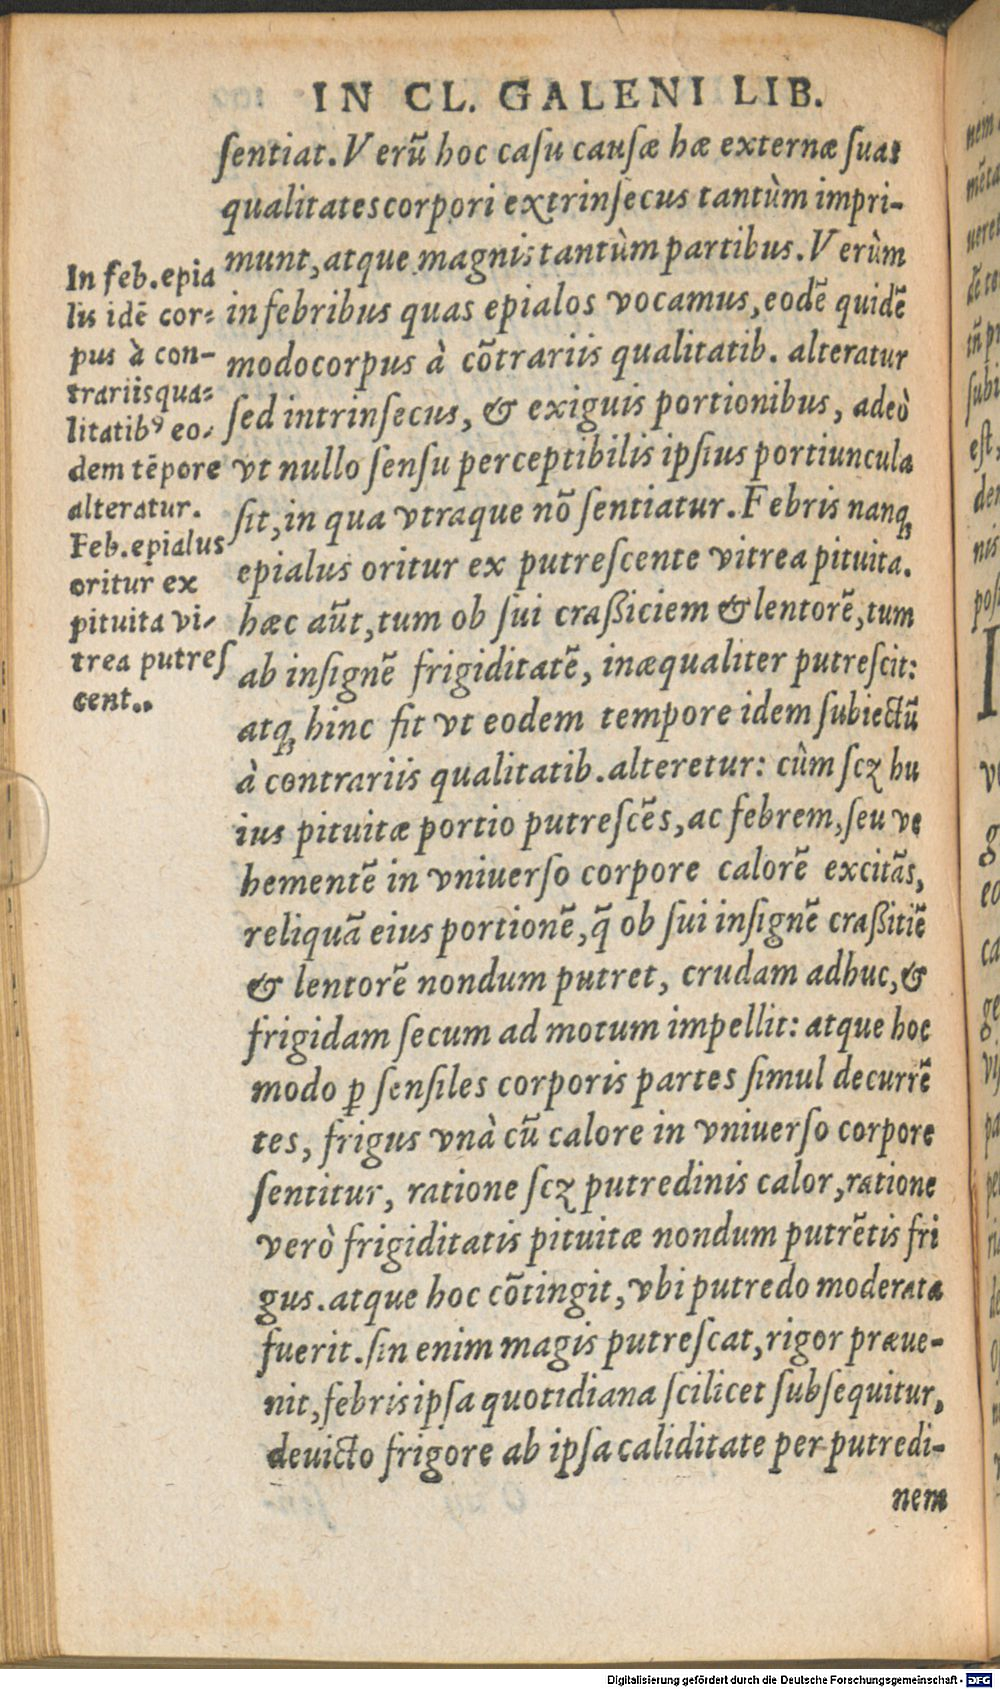 IN CL. GALENI LIB.
ſentiat. Verũ hoc caſu cauſæ hæ externæ ſuas
qualitates corpori extrinſecus tantùm impri-
munt, atque magnis tantùm partibus. Verùm
in febribus quas epialos vocamus, eodẽ quidẽ
modo corpus à cõtrariis qualitatib. alteratur
ſed intrinſecus, & exiguis portionibus, adeò
vt nullo ſenſu perceptibilis ipſius portiuncula
ſit, in qua vtraque nõ ſentiatur. Febris nanq;
epialus oritur ex putreſcente vitrea pituita.
hæc aũt, tum ob ſui craßiciem & lentorẽ, tum
ab inſignẽ frigiditatẽ, inæqualiter putreſcit:
atq; hinc fit vt eodem tempore idem ſubiectũ
à contrariis qualitatib. alteretur: cùm ſcꝫ hu
ius pituitæ portio putreſcẽs, ac febrem, ſeu ve
hementẽ in vniuerſo corpore calorẽ excitãs,
reliquã eius portionẽ, q̃ ob ſui inſignẽ craßitiẽ
& lentorẽ nondum putret, crudam adhuc, &
frigidam ſecum ad motum impellit: atque hoc
modo ꝑ ſenſiles corporis partes ſimul decurrẽ
tes, frigus vnà cũ calore in vniuerſo corpore
ſentitur, ratione ſcꝫ putredinis calor, ratione
verò frigiditatis pituitæ nondum putrẽtis fri
gus. atque hoc cõtingit, vbi putredo moderata
fuerit. ſin enim magis putreſcat, rigor præue-
nit, febris ipſa quotidiana ſcilicet ſubſequitur,
deuicto frigore ab ipſa caliditate per putredi-
nem
In feb. epia
lis idẽ cor-
pus à con-
trariis qua-
litatibꝰ eo-
dem tẽpore
alteratur.
Feb. epialus
oritur ex
pituita vi-
trea putreſ
cent..
Digitalisierung gefördert durch die Deutsche Forschungsgemeinschaft - DFG